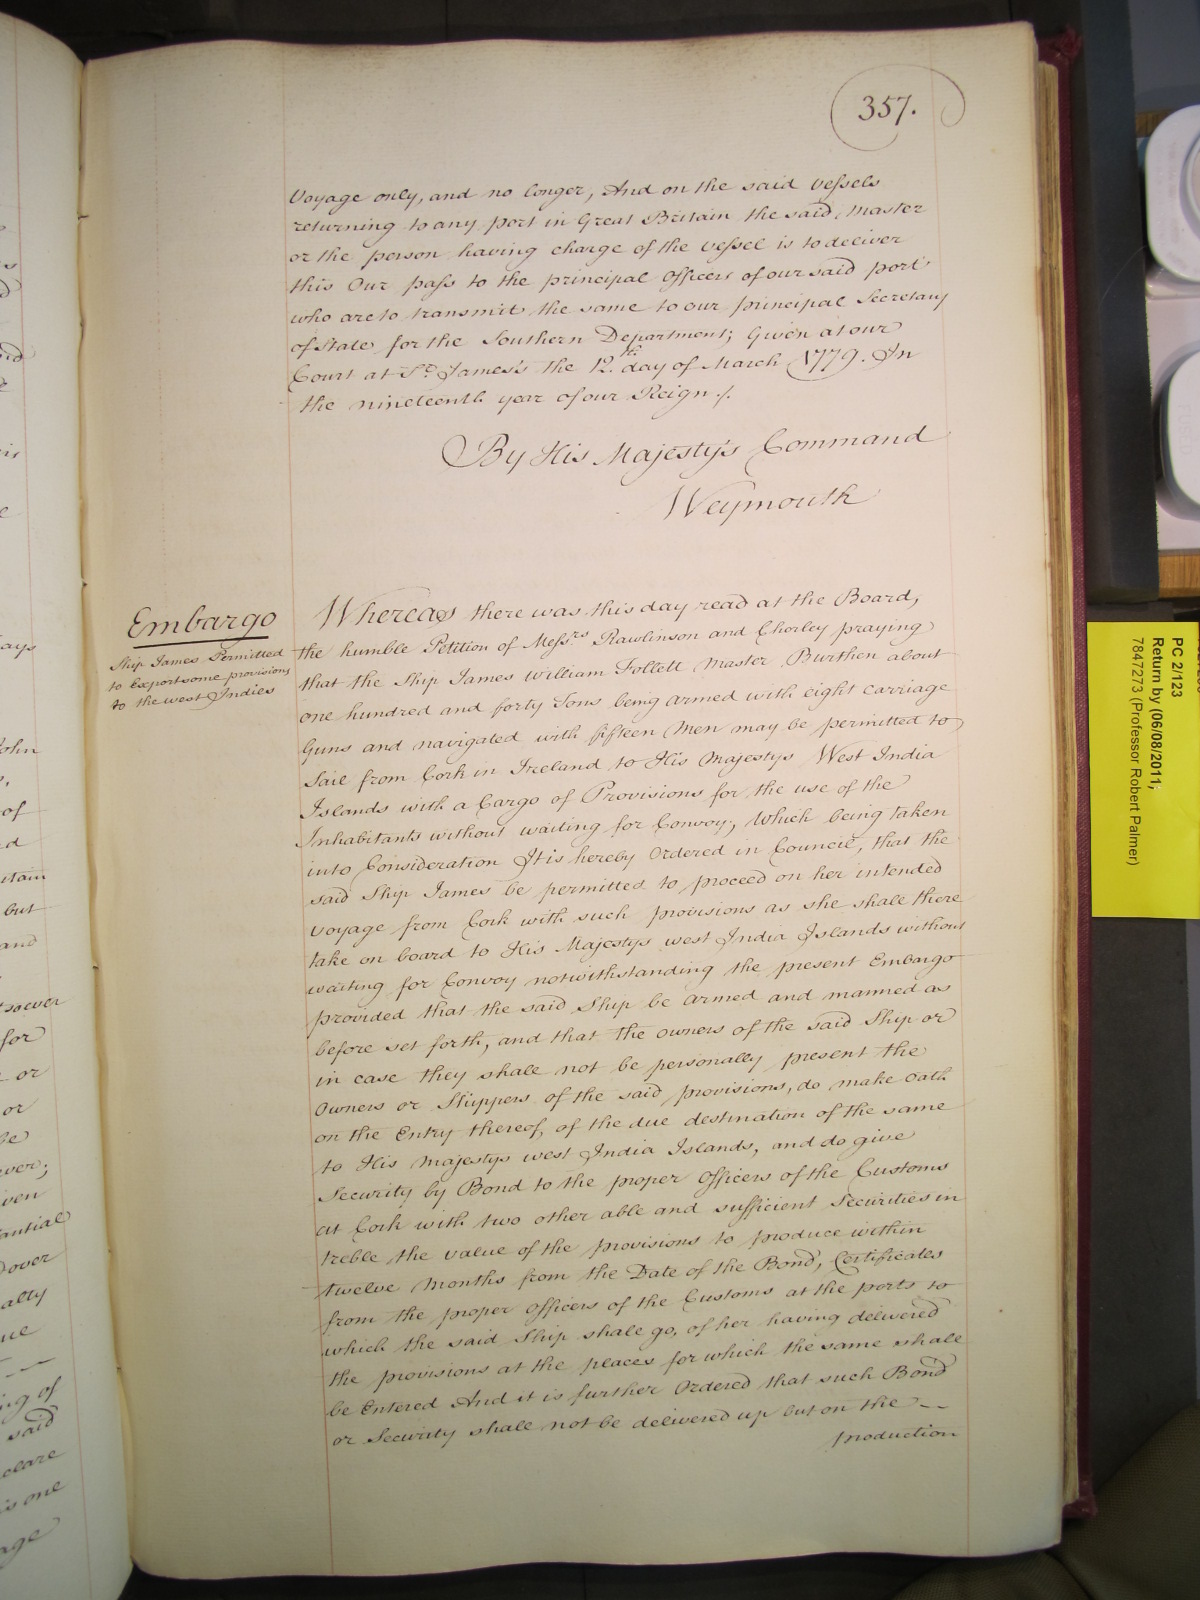 357.
Voyage only, and no longer, And on the said vessels
returning to any port in Great Britain the said Master
or the person having charge of the vessel is to deliver
this Our pass to the principal Officers of our said port
who are to transmit the same to our principal Secretary
of State for the Southern Department; Given at our
Court at St. James's the 12th. day of March 1779. In
the nineteenth year of our Reign /.
By His Majesty's Command
Weymouth
Embargo
Ship James Permitted
to Export some provisions
to the west Indies
Whereas there was this day read at the Board,
the humble Petition of Messrs Rawlinson and Chorley praying
that the Ship James William Follett Master Burthen about
one hundred and forty Tons being armed with eight carriage
Guns and navigated with fifteen Men may be permitted to
Sail from Cork in Ireland to His Majestys West India
Islands with a Cargo of Provisions for the use of the
Inhabitants without waiting for Convoy; Which being taken
into Consideration It is hereby Ordered in Council, that the
said Ship James be permitted to proceed on her intended
voyage from Cork with such provisions as she shall there
take on board to His Majestys west India Islands without
waiting for Convoy notwithstanding the present Embargo
provided that the said Ship be armed and manned as
before set forth, and that the owners of the said Ship or
in case they shall not be personally present the
Owners or Shippers of the said provisions, do make Oath
on the Entry thereof, of the due destination of the same
to His Majestys west India Islands, and do give
Security by Bond to the proper Officers of the Customs
at Cork with two other able and sufficient Securities in
treble the value of the provisions to produce within
twelve Months from the Date of the Bond, Certificates
from the proper officers of the Customs at the ports to
which the said Ship shall go, of her having delivered
the provisions at the places for which the same shall
be Entered And it is further Ordered that such Bond
or Security shall not be delivered up but on the --
production
PC 2/123
Return by (06/08/2011;
7847273 (Professor Robert Palmer)